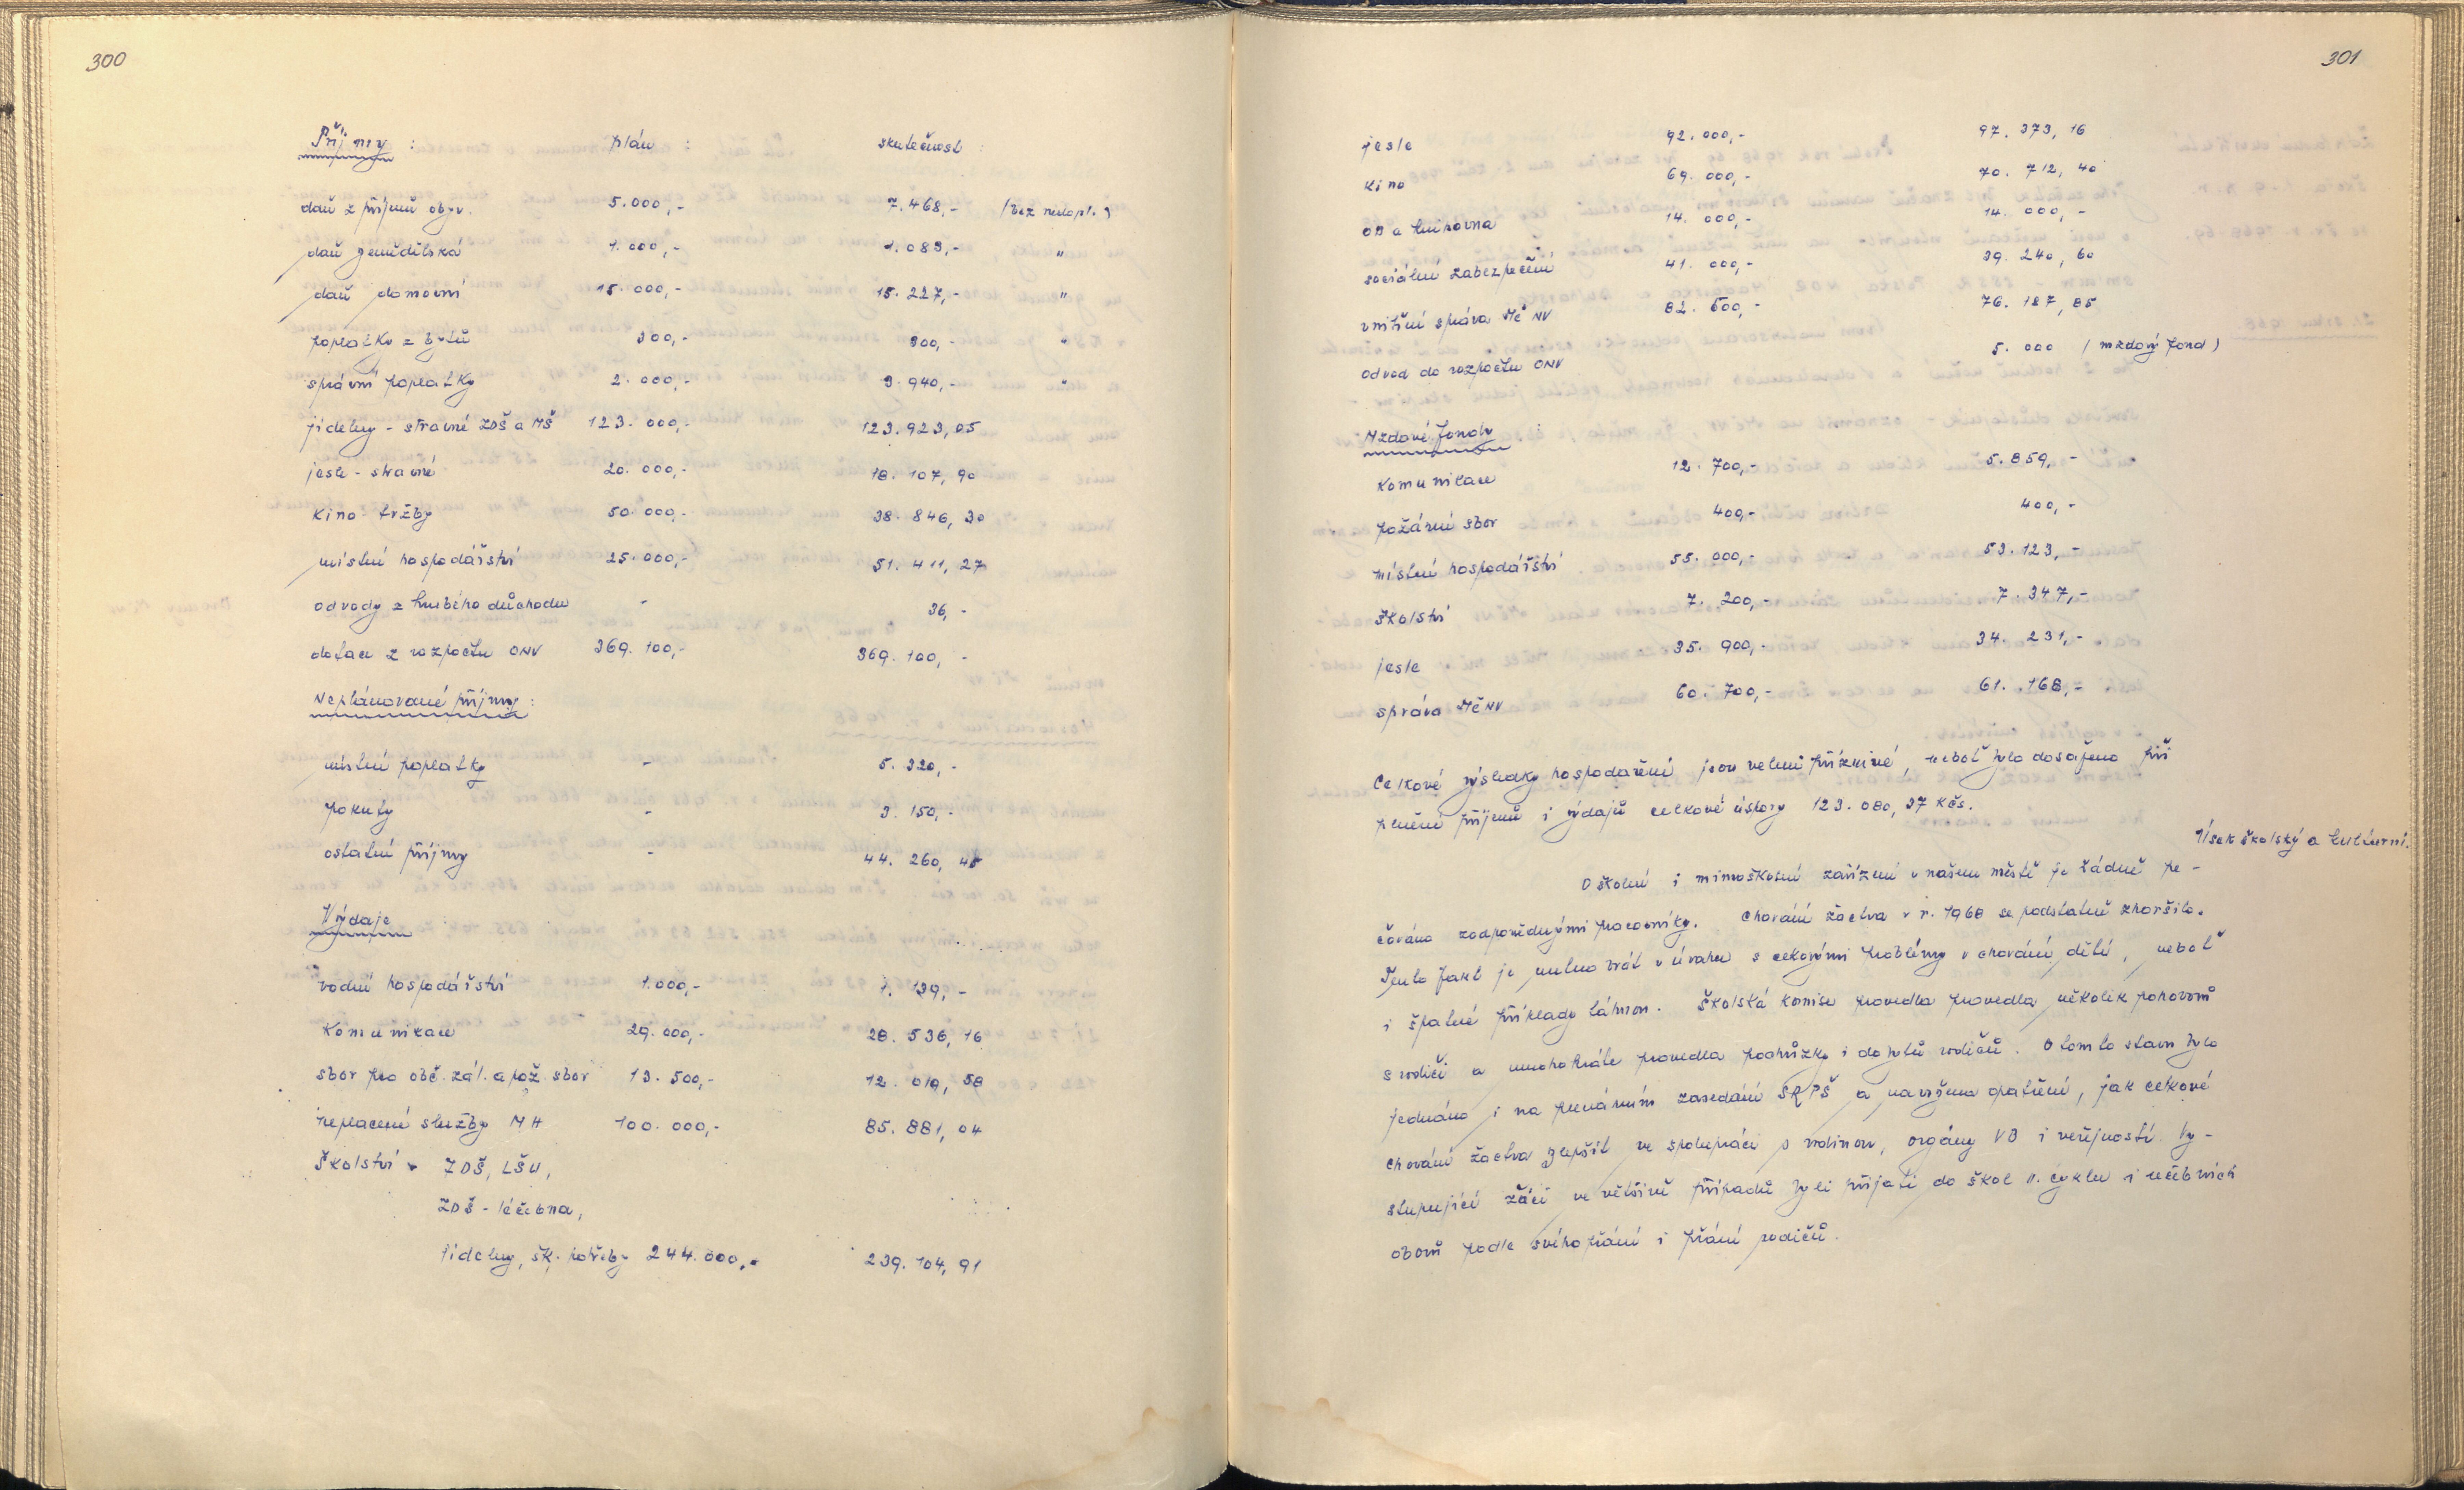 300
Příjmy : plán : skutečnost :
daň z příjmů obyv. 5.000,- 7.468,- (bez nedopl.)
daň zemědělská 1.000,- 1.083,- "
daň domovní 15.000,- 15.227,- "
poplatky z bytů 300,- 300,- "
správní poplatky 2.000,- 3.940,- "
jídelny - stravné ZDŠ a MŠ 123.000,- 123.923,05
jesle - stravné 20.000,- 18.107,90
Kino - tržby 50.000,- 38.846,30
místní hospodářství 25.000,- 51.411,27
odvody z hrubého důchodu - 36,-
dotace z rozpočtu ONV 369.100,- 369.100,-
Neplánované příjmy :
místní poplatky - 5.320,-
pokuty - 3.150,-
ostatní příjmy - 44.260,45
Výdaje :
vodní hospodářství 1.000,- 1.139,-
Komunikace 29.000,- 28.536,16
sbor pro obč. zál. a pož. sbor 13.500,- 12.019,58
neplacené služby MH 100.000,- 85.881,04
Školství - ZDŠ, LŠU,
ZDŠ - léčebna,
jídelny, šk. potřeby 244.000,- 239.104,91
301
jesle 92.000,- 97.373,16
Kino 69.000,- 70.712,40
OB a knihovna 14.000,- 14.000,-
sociální zabezpečení 41.000,- 39.240,60
vnitřní správa MěNV 82.500,- 76.187,85
odvod do rozpočtu ONV 5.000 (mzdový fond)
Mzdové fondy :
Komunikace 12.700,- 5.859,-
požární sbor 400,- 400,-
místní hospodářství 55.000,- 53.123,-
školství 7.200,- 7.347,-
jesle 35.900,- 34.231,-
správa MěNV 60.700,- 61.168,-
Celkové výsledky hospodaření jsou velmi příznivé, neboť bylo dosaženo při
plnění příjmů i výdajů celkové úspory 123.080,37 Kčs.
Úsek školský a kulturní.
O školní i mimoškolní zařízení v našem městě je řádně pe-
čováno zodpovědnými pracovníky. Chování žactva v r. 1968 se podstatně zhoršilo.
Tento fakt je nutno brát v úvahu s celkovými problémy v chování dětí, neboť
i špatné příklady táhnou. Školská komise provedla provedla několik pohovorů
s rodiči a mnohokráte provedla pochůzky i do bytů rodičů. O tomto stavu bylo
jednáno i na plenárním zasedání SRPŠ a navrženo opatření, jak celkové
chování žactva zlepšit ve spolupráci s rodinou, orgány VB i veřejností. Vy-
stupující žáci ve většině případů byli přijati do škol II. cyklu i učebních
oborů podle svého přání i přání rodičů.